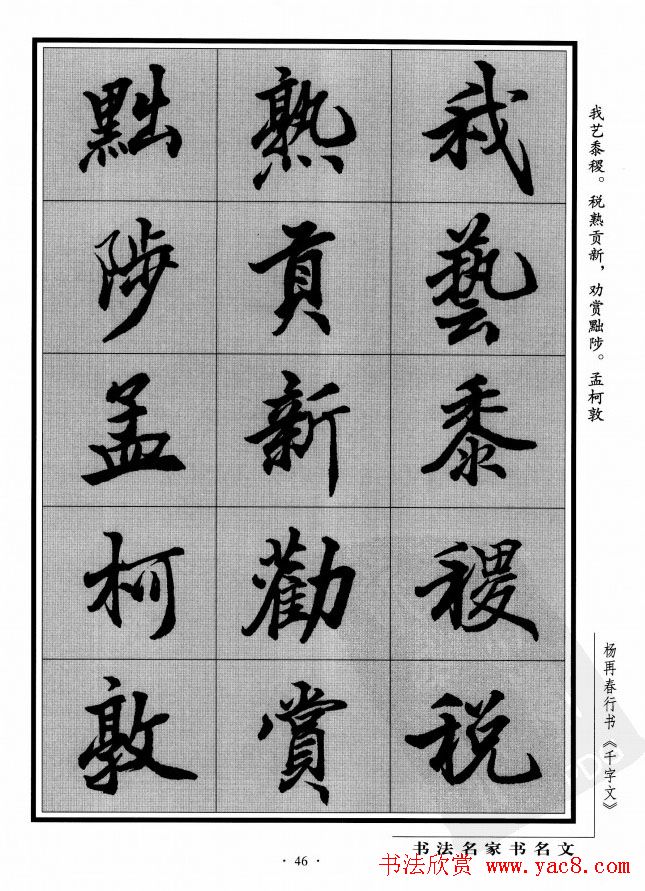 我藝黍稷税
熟貢新勸賞
黜陟孟柯敦
我艺黍稷。税熟贡新，劝赏黜陟。孟柯敦
杨再春行书《千字文》
书法名家书名文
·46·
书法欣赏 www.yac8.com